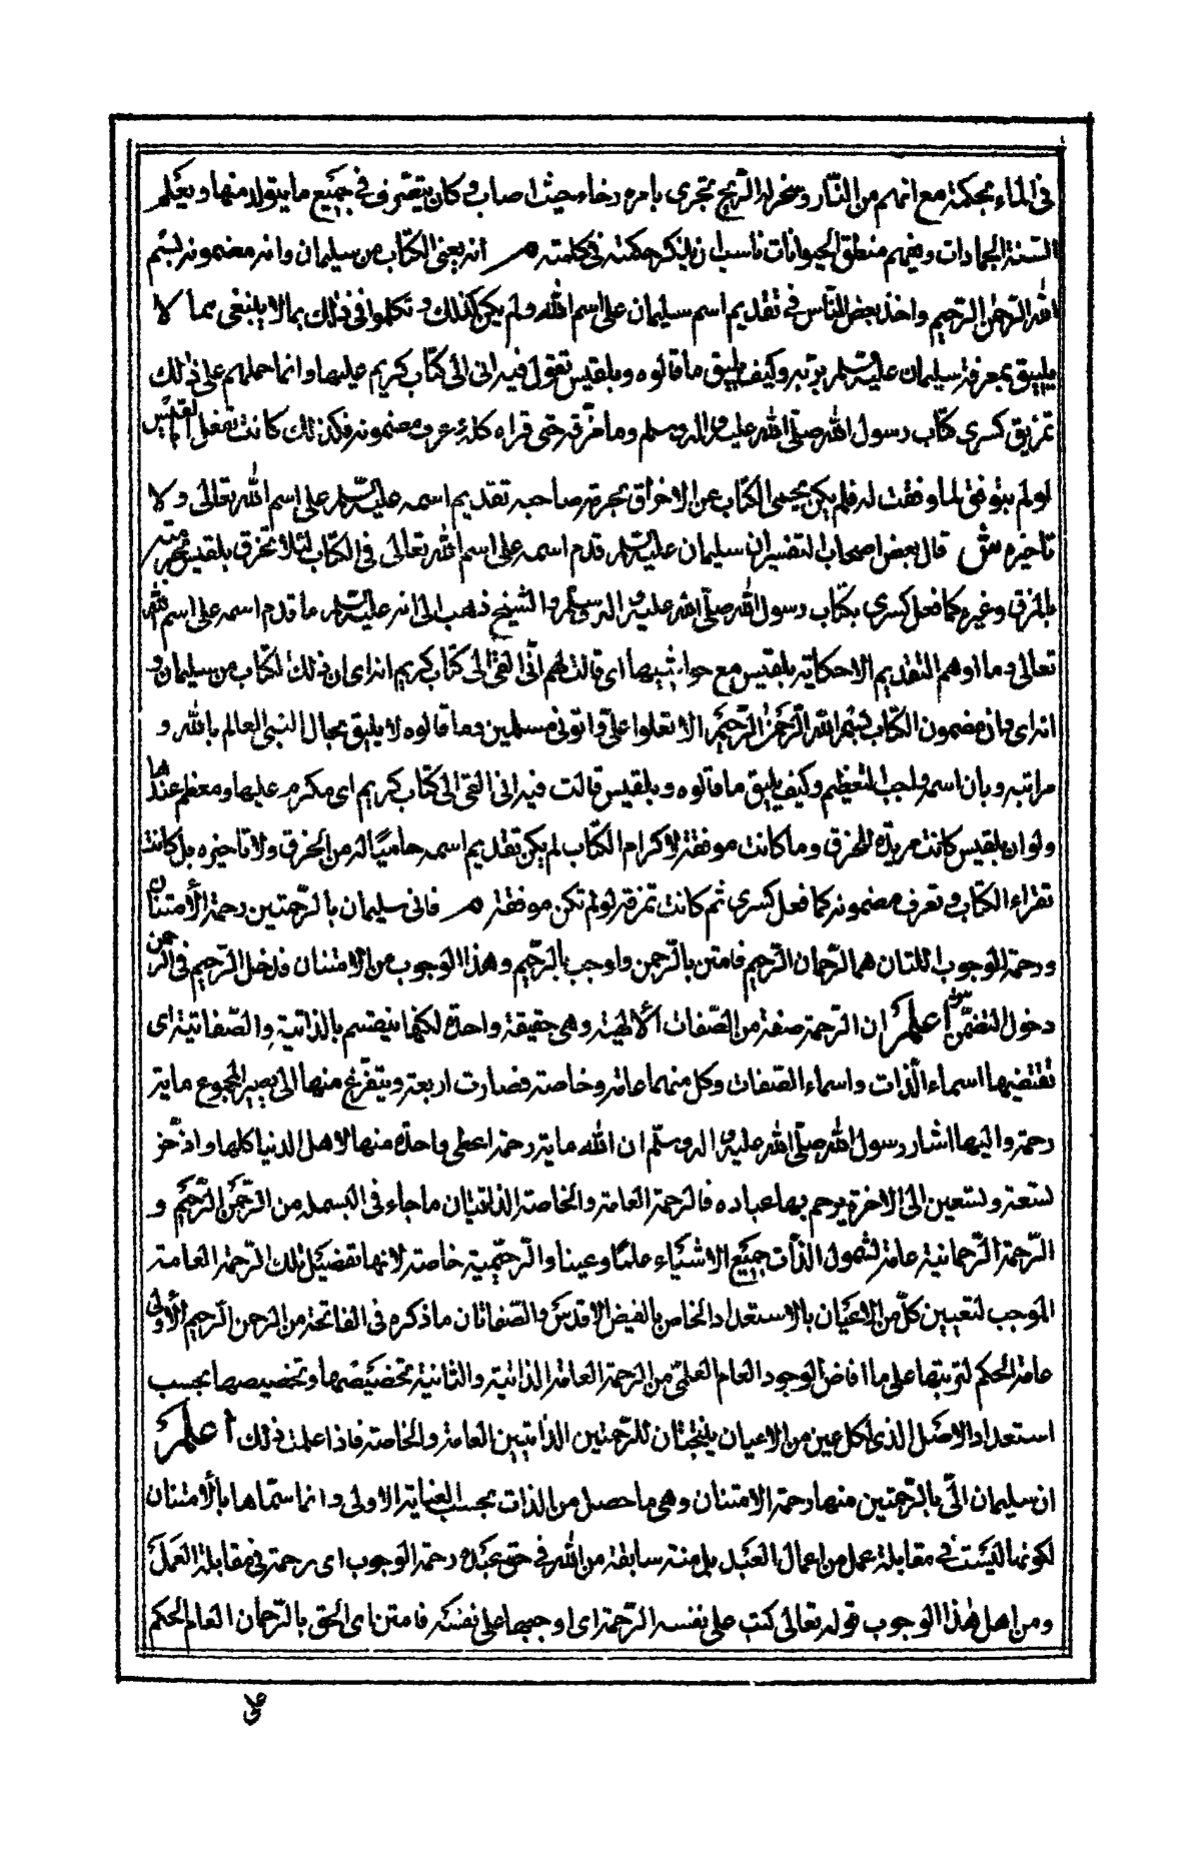 فى الماء بحكمة مع انهم من النار وسخر له الريح تجرى بامره رخاء حيث اصاب وكان يتصرف فى جميع ما يتولد منها ويعلم
السنة الجمادات ويفهم منطق الحيوانات ناسب ان يذكر حكمته فى كلمته م انه يعنى الكتاب من سليمان وانه مضمونه بسم
الله الرحمن الرحيم واخذ بعض الناس فى تقديم اسم سليمان على اسم الله ولم يكن كذلك وتكلموا فى ذلك بما لا ينبغى مما لا
يليق بمعرفة سليمان عليه السلام بربه وكيف يليق ما قالوه وبلقيس تقول فيه انى الى كتاب كريم عليها وانما حملهم على ذلك
تمزيق كسرى كتاب رسول الله صلى الله عليه واله وسلم وما مزقه حتى قراه كله وعرف مضمونه فكذلك كانت تفعل بلقيس
لو لم يتوفق لما وفقت له فلم يكن يحيى الكتاب عن الاخراق بحرمة صاحبه تقديم اسمه عليه السلام على اسم الله تعالى ولا
تاخيره ش قال بعض اصحاب التفسير ان سليمان عليه السلام قدم اسمه على اسم الله تعالى فى الكتاب لئلا تخرق بلقيس حرمته
بالخرق وغيره كما فعل كسرى بكتاب رسول الله صلى الله عليه واله وسلم والشيخ ذهب الى انه عليه السلام ما قدم اسمه على اسم الله
تعالى وما اوهم التقديم الا حكاية بلقيس مع حواشيها اى قالت لهم انى القى الى كتاب كريم انه اى ان ذلك الكتاب من سليمان و
انه اى وان مضمون الكتاب بسم الله الرحمن الرحيم الا تعلوا على واتونى مسلمين وما قالوه لا يليق بحال النبى العالم بالله و
مراتبه وبان اسمه واجب التعظيم وكيف يليق ما قالوه وبلقيس قالت فيه انى القى الى كتاب كريم اى مكرم عليها ومعظم عندها
ولو ان بلقيس كانت مريدة للخرق وما كانت موفقة لاكرام الكتاب لم يكن تقديم اسمه حاميا له من الخرق ولا تاخيره بل كانت
تقراء الكتاب وتعرف مضمونه كما فعل كسرى ثم كانت تمزقه لو لم تكن موفقة م فاتى سليمان بالرحمتين رحمة الامتنان
ورحمة الوجوب اللتان هما الرحمان الرحيم فامتن بالرحمن واوجب بالرحيم وهذا الوجوب من الامتنان فدخل الرحيم فى الرحمن
دخول التضمن ش اعلم ان الرحمة صفة من الصفات الالهية وهى حقيقة واحدة لكنها ينقسم بالذاتية والصفاتية اى
تقتضيها اسماء الذات واسماء الصفات وكل منهما عامة وخاصة فصارت اربعة ويتفرع منها الى يصير المجموع ماية
رحمة واليها اشار رسول الله صلى الله عليه واله وسلم ان الله ماية رحمة اعطى واحدة منها لاهل الدنيا كلها وادخر
تسعة وتسعين الى الاخرة يرحم بها عباده فالرحمة العامة والخاصة الذاتيتان ما جاء فى البسملة من الرحمن الرحيم و
الرحمة الرحمانية عامة لشمول الذات جميع الاشياء علما وعينا والرحيمية خاصة لانها تفصيل تلك الرحمة العامة
الموجب لتعيين كل من الاعيان بالاستعداد الخاص بالفيض الاقدس والصفاتان ما ذكره فى الفاتحة من الرحمن الرحيم الاولى
عامة الحكم لترتبها على ما افاض الوجود العام العلمى من الرحمة العامة الذاتية والثانية تخصيصها وتخصيصها بحسب
استعداد الاصل الذى لكل عين من الاعيان ينتجتان للرحمتين الذاتيتين العامة والخاصة فاذا علمت ذلك اعلم
ان سليمان اتى بالرحمتين منها رحمة الامتنان وهى ما حصل من الذات بحسب العناية الاولى وانما سماها بالامتنان
لكونها ليست فى مقابلة عمل من اعمال العبد بل منة سابقة من الله فى حق عبده رحمة الوجوب اى رحمة فى مقابلة العمل
ومن اهل هذا الوجوب قوله تعالى كتب على نفسه الرحمة اى اوجبها على نفسه فامتن اى الحق بالرحمان العام الحكم
على